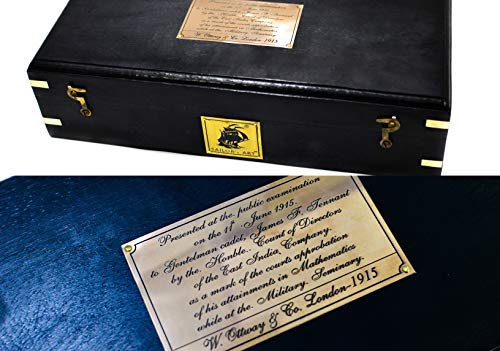 W. Ottway & Co. London - 1915
SAILOR'S ART
Presented at the public examination
on the June 1915.
to Gentelman cadet, James F. Tennant
by the Honble. Count of Directors
of the East India Company.
as a mark of the courts approbation
of his attainments in Mathematics
while at the Military. Seminary.
W. Ottway & Co. London-1915